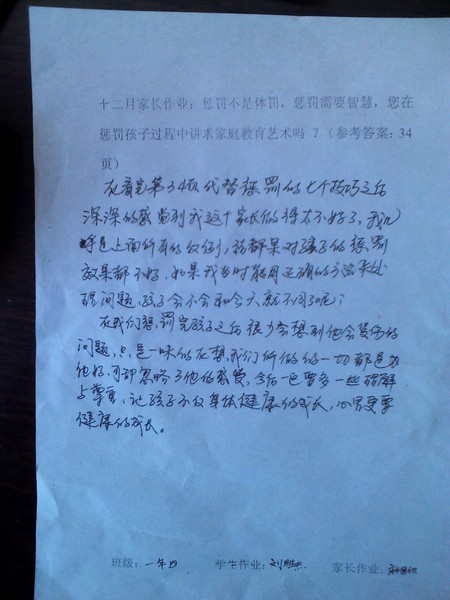 十二月家长作业：惩罚不是体罚，惩罚需要智慧，您在
惩罚孩子过程中讲求家庭教育艺术吗？（参考答案：34
页）
在看完第34页代替惩罚的七个技巧之后
深深的感觉到我这个家长做得太不好了，我几
乎是上面所有的反例，结果对孩子的惩罚
效果都不好，如果我当时能用正确的方法来处
理问题，孩子会不会和今天就不同了呢？
在我们惩罚完孩子之后很少会想到他会受伤的
问题，只是一味的在想，我们所做的一切都是为
他好，可却忽略了他的感受，今后一定要多一些理解
与尊重，让孩子不仅身体健康的成长，心里更要
健康的成长。
班级：一年四 学生作业：刘 家长作业：